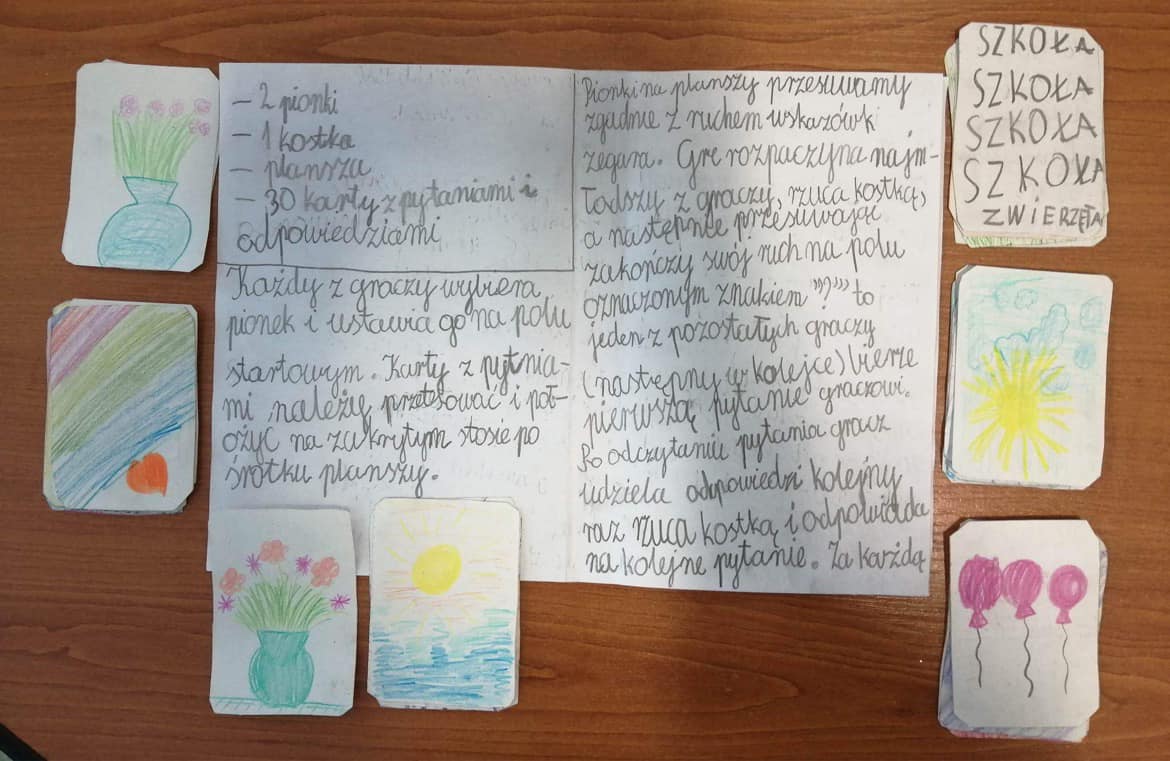 – 2 pionki
– 1 kostka
– plansza
– 30 karty z pytaniami i
odpowiedziami
Każdy z graczy wybiera
pionek i ustawia go na polu
startowym. Karty z pytnia-
mi należy przetesować i poł-
ożyć na zakrytym stosie po
środku planszy.
Pionki na planszy przesuwamy
zgodnie z ruchem wskazówk
zegara. Grę rozpaczyna najm-
łodszy z graczy, rzuca kostką,
a następnie przesuwając
zakończy swój ruch na polu
oznaczonym znakiem "?" to
jeden z pozostałych graczy
(następny w kolejce) bierze
pierwszą pytanie graczowi.
Po odczytaniu pytania gracz
udziela odpowiedzi kolejny
raz rzuca kostką i odpowiada
na kolejne pytanie. Za każdą
SZKOŁA
SZKOŁA
SZKOŁA
SZKOŁA
ZWIERZĘTA